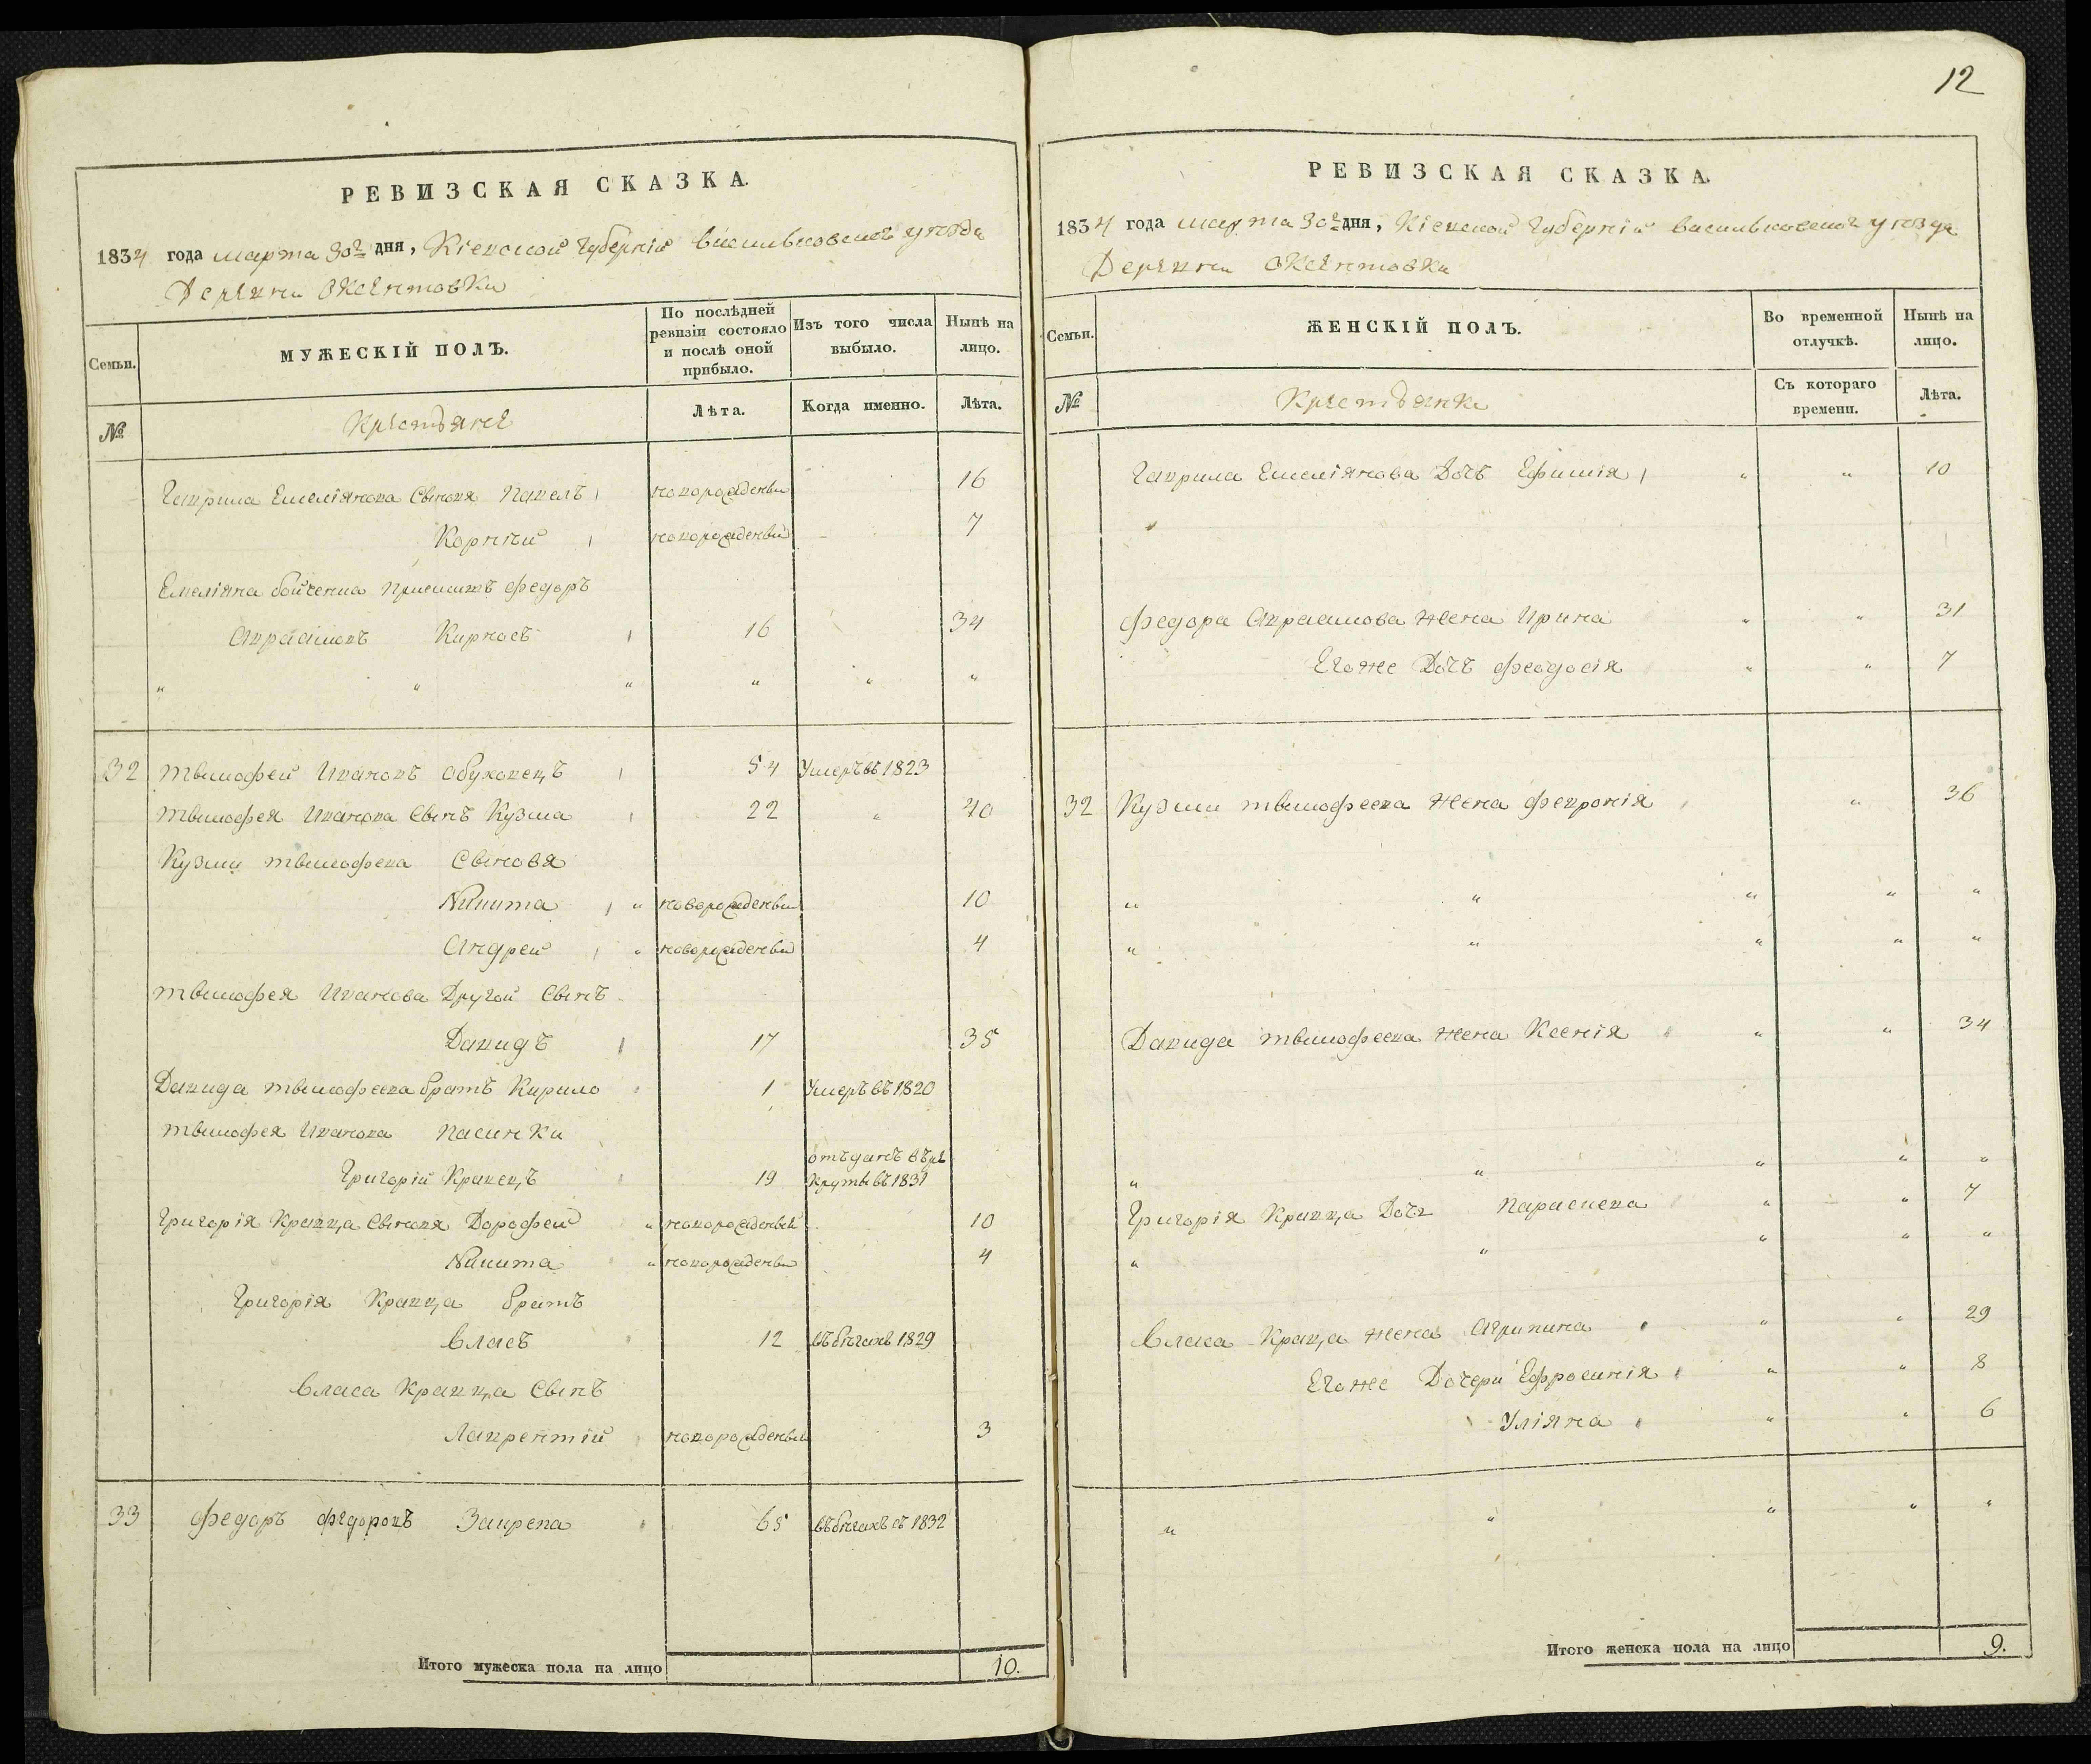 12
РЕВИЗСКАЯ СКАЗКА.
1834 года марта 30го дня, Кіевской губерніи Васильковского уѣзда
Деревни Оксентовки
Семьи.
МУЖЕСКІЙ ПОЛЪ.
По послѣдней ревизіи состояло и послѣ оной прибыло.
Изъ того числа выбыло.
Нынѣ на лицо.
№
Крестьяне
Лѣта.
Когда именно.
Лѣта.
Гаврила Емеліянова Сыновя Павелъ новорожденый 16
Корнѣй новорожденый 7
Емеліяна бойченка Приемишъ Федоръ
Авраамовъ Кирносъ 16 34
" " " " " "
32 Тымофей Ивановъ Обуховецъ 54 Умеръ въ 1823
Тымофея Иванова Сынъ Кузма 22 " 40
Кузми Тымофеева Сыновя
Никита " новорожденый 10
Андрей " новорожденый 4
Тымофея Иванова Другой Сынъ
Давидъ 17 35
Давида Тымофеева братъ Кирило 1 Умеръ въ 1820
Тымофея Иванова Пасинки
Григорій Кравецъ 19 отъданъ въ рекруты въ 1831
Григорія Кравца Сыновя Дорофей " новорожденый 10
Никита " новорожденый 4
Григорія Кравца братъ
Власъ 12 въ бѣгахъ 1829
Власа Кравца Сынъ
Лаврентій новорожденый 3
33 Федоръ Федоровъ 65 въ бѣгахъ съ 1832
Итого мужеска пола на лицо 10.
РЕВИЗСКАЯ СКАЗКА.
1834 года марта 30го дня, Кіевской губерніи Васильковского уѣзда
Деревни Оксентовки
Семьи.
ЖЕНСКІЙ ПОЛЪ.
Во временной отлучкѣ.
Нынѣ на лицо.
№
Крестьянки
Съ котораго времени.
Лѣта.
Гаврила Емеліянова Дочъ Ефимія " " 10
"
Федора Авраамова Жена Ирина " " 31
Егоже Дочъ Феодосія " " 7
32 Кузми Тымофеева Жена Февронія " 36
" " " " "
" " " " "
Давида Тымофеева Жена Ксенія " " 34
" " " " "
Григорія Кравца Дочъ Параскева " " 7
" " " " "
Власа Кравца Жена Агрипина " " 29
Егоже Дочери Ефросинія " " 8
Уліяна " " 6
" " " " "
Итого женска пола на лицо 9.